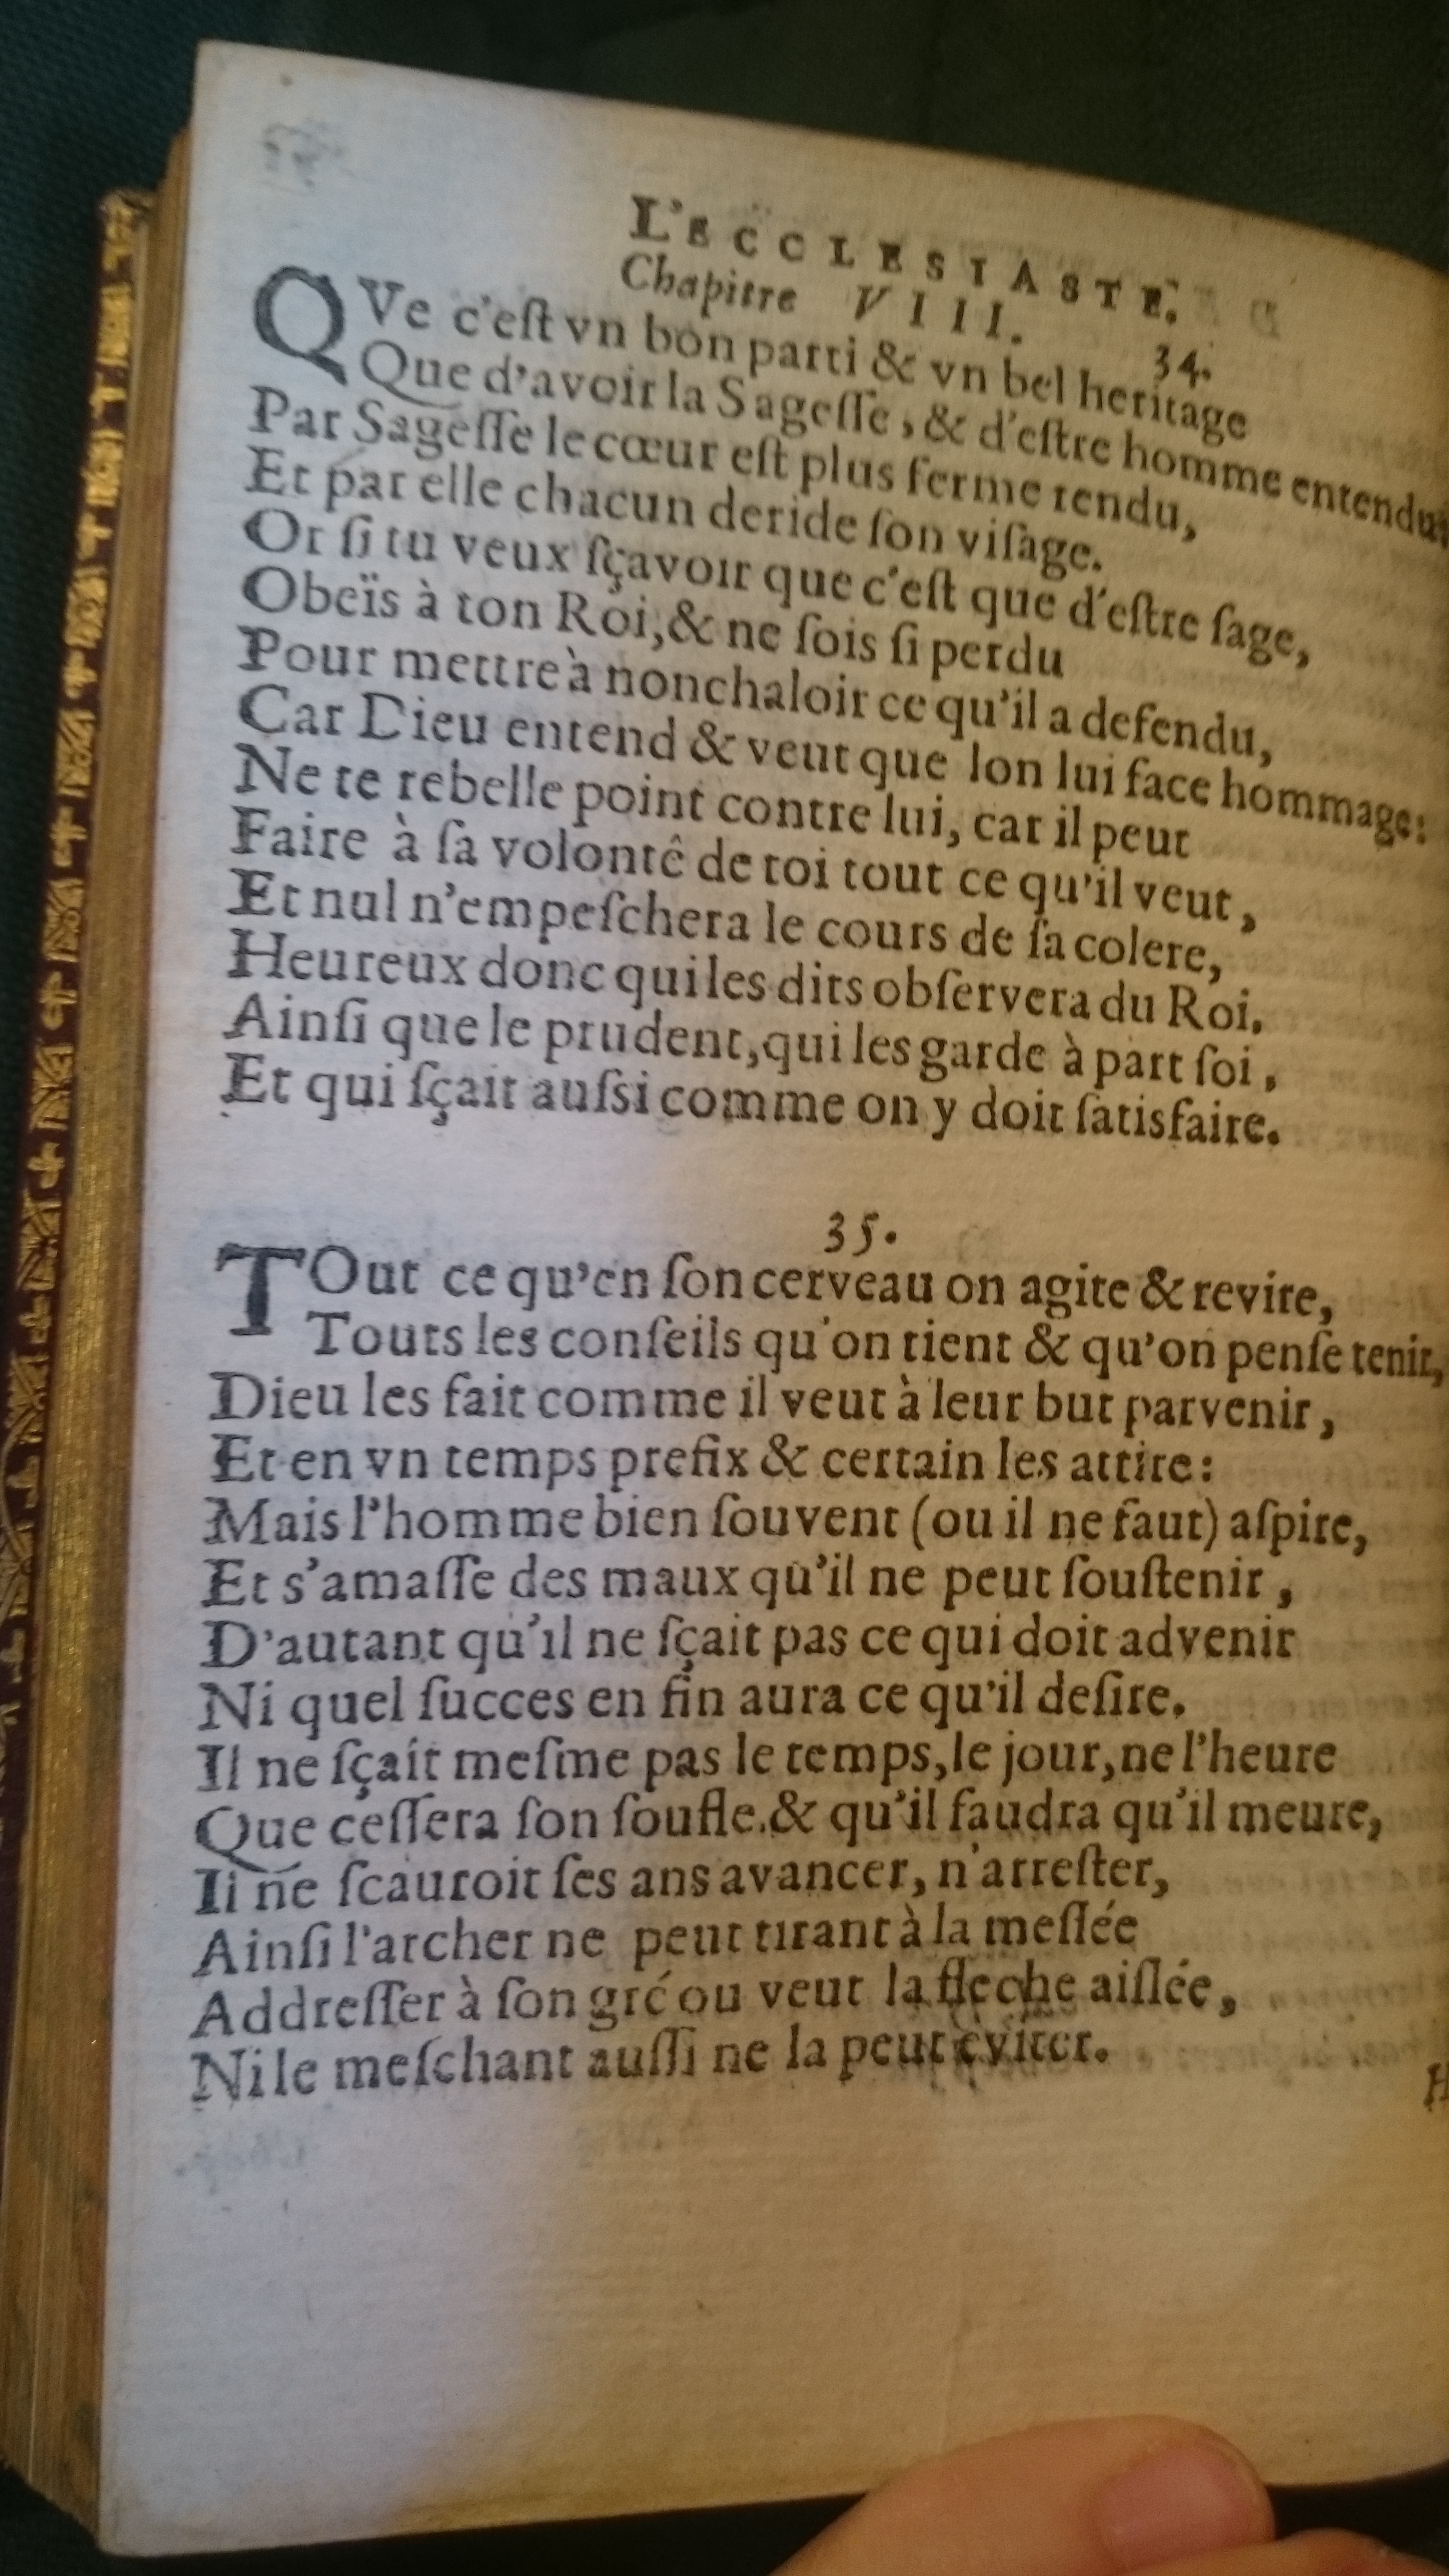 L'ECCLESIASTE.
Chapitre VIII. 34.
QVe c'eſt vn bon parti & vn bel heritage
Que d'avoir la Sageſſe, & d'eſtre homme entendu,
Par Sageſſe le cœur eſt plus ferme rendu,
Et par elle chacun deride ſon viſage.
Or ſi tu veux ſçavoir que c'eſt que d'eſtre ſage,
Obeïs à ton Roi, & ne ſois ſi perdu
Pour mettre à nonchaloir ce qu'il a defendu,
Car Dieu entend & veut que lon lui face hommage:
Ne te rebelle point contre lui, car il peut
Faire à ſa volontê de toi tout ce qu'il veut,
Et nul n'empeſchera le cours de ſa colere,
Heureux donc qui les dits obſervera du Roi.
Ainſi que le prudent, qui les garde à part ſoi,
Et qui ſçait auſsi comme on y doit ſatisfaire.
35.
TOut ce qu'en ſon cerveau on agite & revire,
Touts les conſeils qu'on tient & qu'on penſe tenir,
Dieu les fait comme il veut à leur but parvenir,
Et en vn temps prefix & certain les attire:
Mais l'homme bien ſouvent (ou il ne faut) aſpire,
Et s'amaſſe des maux qu'il ne peut ſouſtenir,
D'autant qu'il ne ſçait pas ce qui doit advenir
Ni quel ſucces en fin aura ce qu'il deſire.
Il ne ſçait meſme pas le temps, le jour, ne l'heure
Que ceſſera ſon ſoufle. & qu'il faudra qu'il meure,
Il ne ſcauroit ſes ans avancer, n'arreſter,
Ainſi l'archer ne peut tirant à la meſlée
Addreſſer à ſon gré ou veut la fleche aiſlée,
Ni le meſchant auſſi ne la peut éviter.